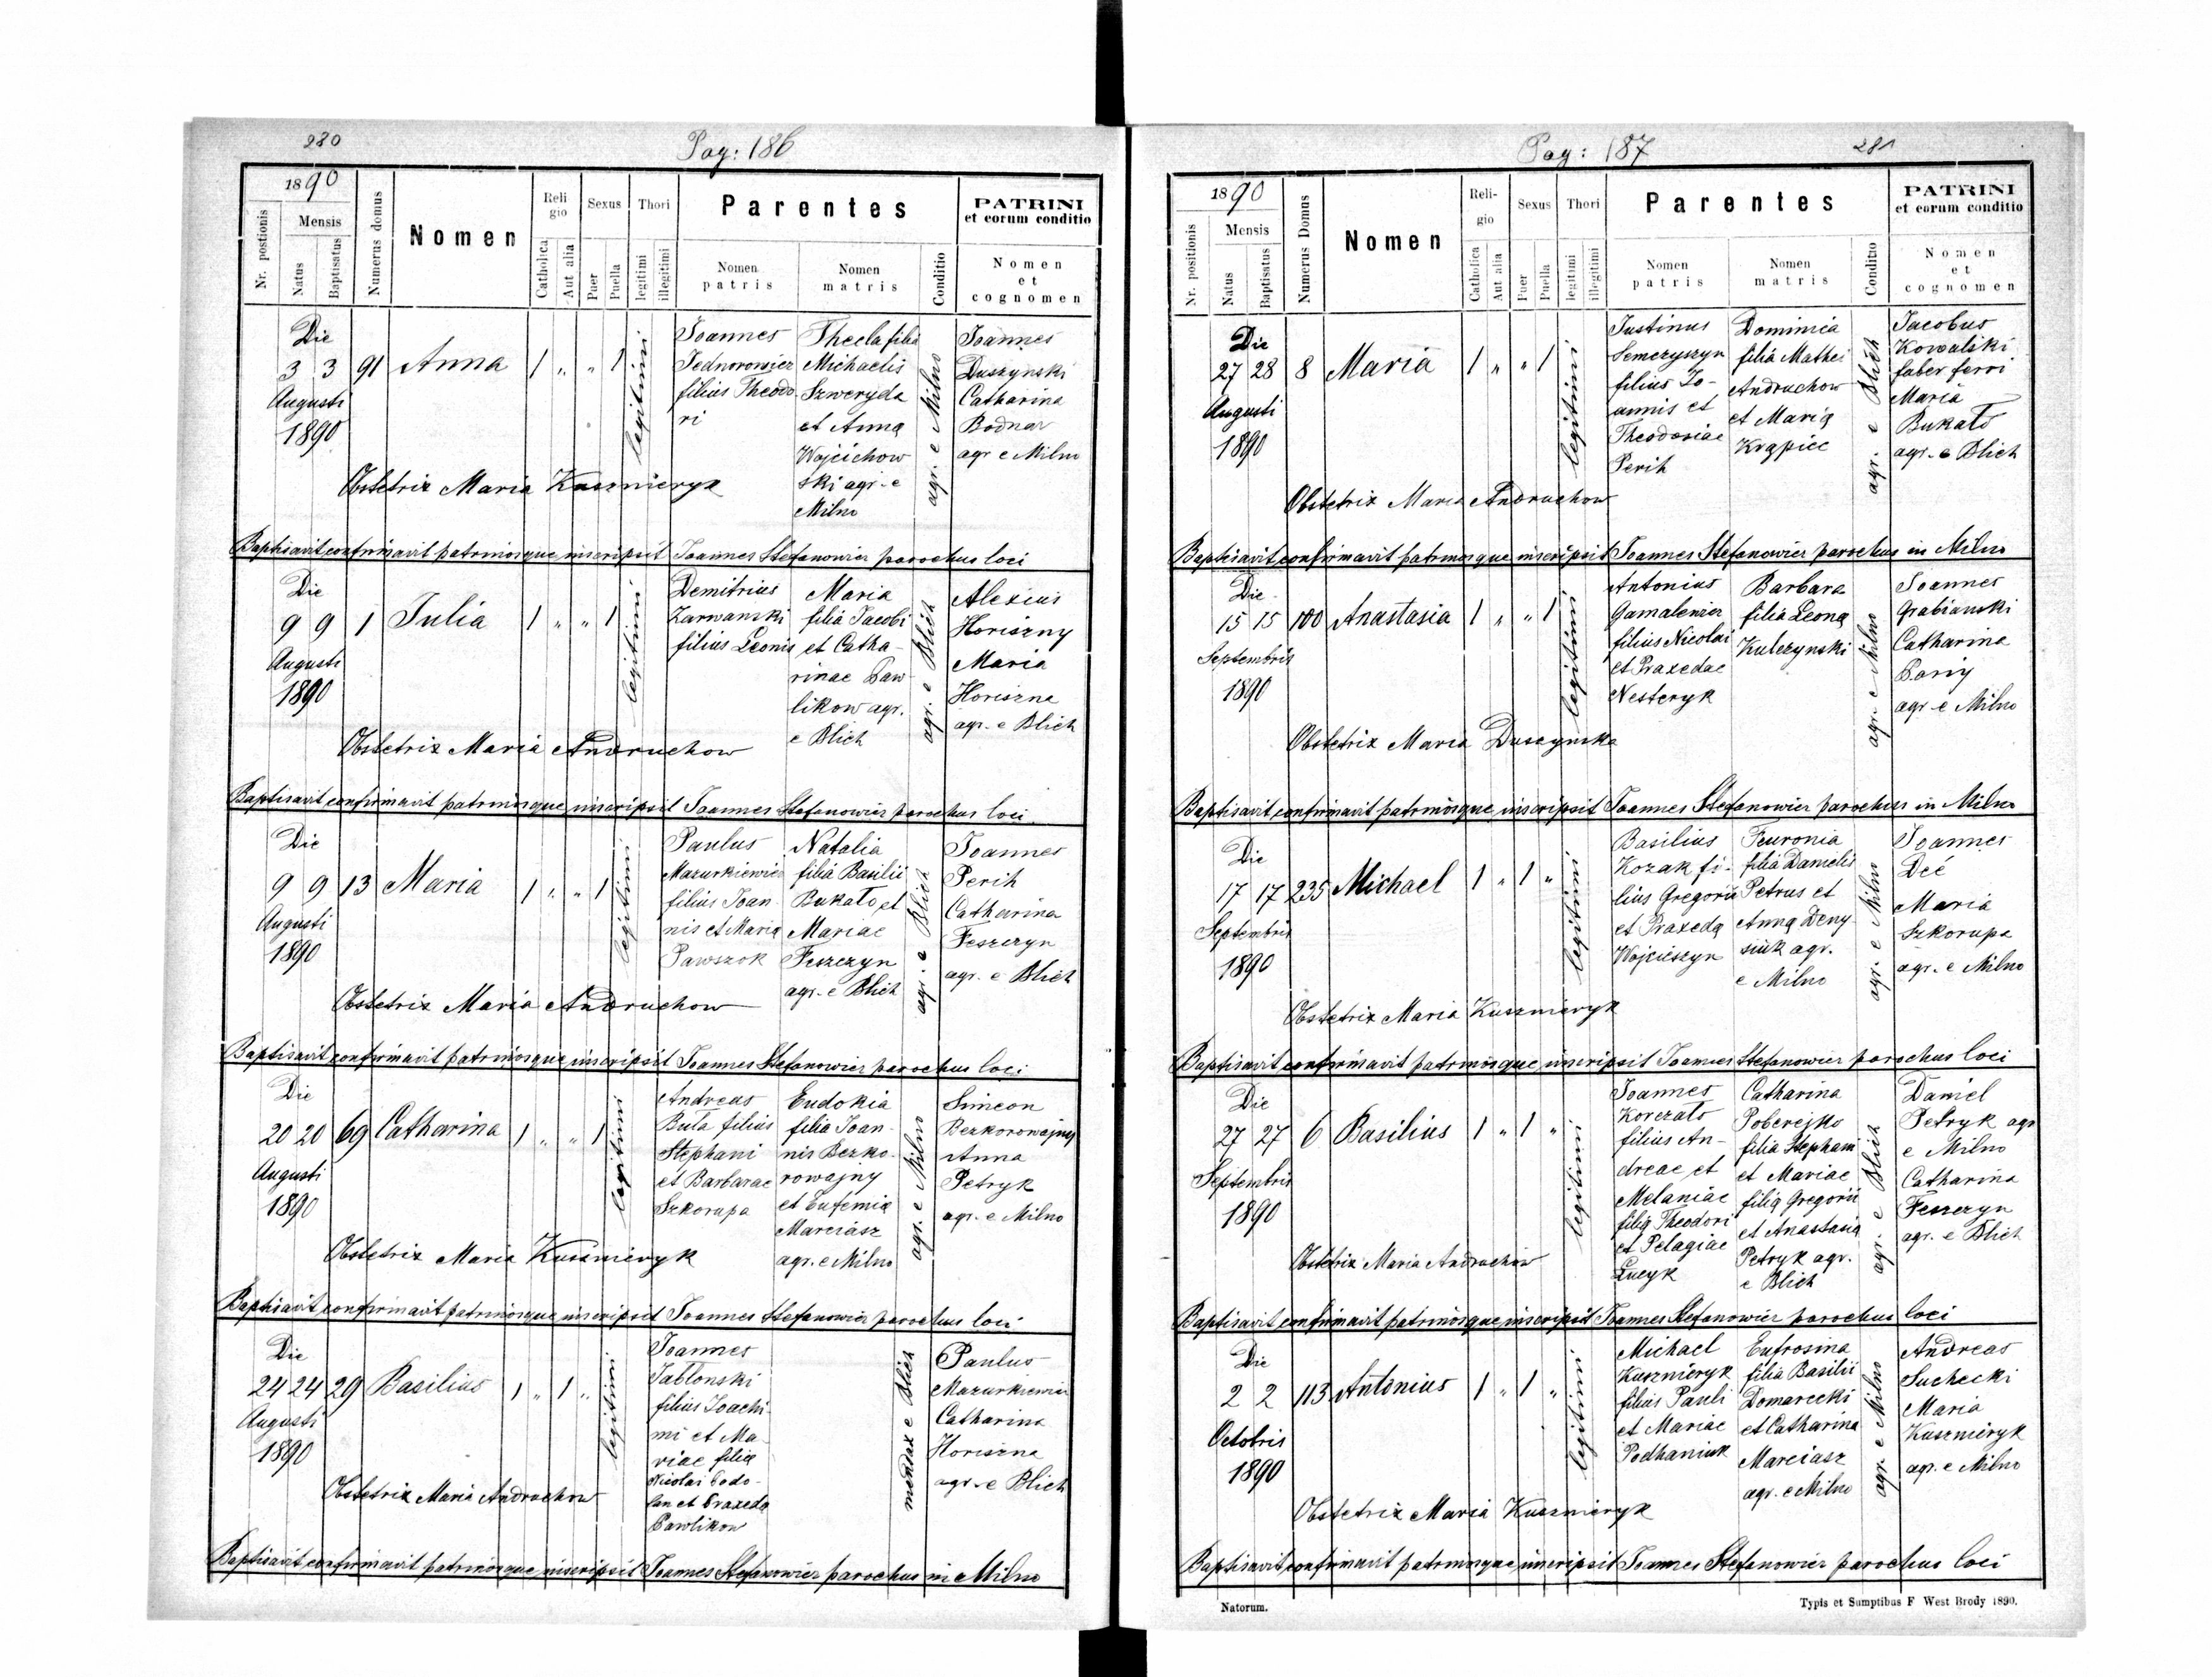 280
Pag: 186
1890
Nr. postionis
Mensis
Natus
Baptisatus
Numerus domus
Nomen
Religio
Catholica
Aut alia
Sexus
Puer
Puella
Thori
legitimi
illegitimi
Parentes
Nomen patris
Nomen matris
Conditio
PATRINI
et eorum conditio
Nomen
et
cognomen
Die
3 3 91 Anna 1 „ „ 1 legitimi
Augusti
1890
Joannes
Jednorowicz
filius Theodo
ri
Thecla filia
Michaelis
Szweryda
et Anna
Wojcichow
ski agr. e
Milno
agr. e Milno
Joannes
Duszynski
Catharina
Bodnar
agr e Milno
Obstetrix Maria Kuszmeryk
Baptisavit confirmavit patrinosque inscripsit Joannes Stefanowicz parochus loci
Die
9 9 1 Julia 1 „ „ 1 legitimi
Augusti
1890
Demitrius
Zarwanski
filius Leonis
Maria
filia Jacobi
et Catha-
rinae Paw
likow agr.
e Blich
agr. e Blich
Alexius
Horiszny
Maria
Horiszna
agr. e Blich
Obstetrix Maria Andruchow
Baptisavit confirmavit patrinosque inscripsit Joannes Stefanowicz parochus loci
Die
9 9 13 Maria 1 „ „ 1 legitimi
Augusti
1890
Paulus
Mazurkiewicz
filius Joan
nis et Maria
Pawszok
Natalia
filia Basilii
Bukato et
Mariae
Feszczyn
agr. e Blich
agr. e Blich
Joannes
Perih
Catharina
Feszczyn
agr. e Blich
Obstetrix Maria Andruchow
Baptisavit confirmavit patrinosque inscripsit Joannes Stefanowicz parochus loci
Die
20 20 69 Catharina 1 „ „ 1 legitimi
Augusti
1890
Andreas
Buta filius
Stephani
et Barbarae
Szkorupa
Eudokia
filia Joan-
nis Bezko-
rowajny
et Eufemia
Marciasz
agr. e Milno
agr. e Milno
Simeon
Bezkorowajny
Anna
Petryk
agr. e Milno
Obstetrix Maria Kuszmeryk
Baptisavit confirmavit patrinosque inscripsit Joannes Stefanowicz parochus loci
Die
24 24 29 Basilius 1 „ 1 „ legitimi
Augusti
1890
Joannes
Jablonski
filius Joachi
mi et Ma-
riae filia
Nicolai
et Praxeda
Pawlikow
mendax e Blich
Paulus
Mazurkiewicz
Catharina
Horiszna
agr. e Blich
Obstetrix Maria Andruchow
Baptisavit confirmavit patrinosque inscripsit Joannes Stefanowicz parochus in Milno
Pag: 187
281
1890
Nr. positionis
Mensis
Natus
Baptisatus
Numerus Domus
Nomen
Religio
Catholica
Aut alia
Sexus
Puer
Puella
Thori
legitimi
illegitimi
Parentes
Nomen patris
Nomen matris
Conditio
PATRINI
et eorum conditio
Nomen
et
cognomen
Die
27 28 8 Maria 1 „ „ 1 legitimi
Augusti
1890
Justinus
Semczyszyn
filius Jo-
annis et
Theodosiae
Perih
Dominica
filia Mathei
Andruchow
et Maria
Krąpiec
agr. e Blich
Jacobus
Kowalski
faber ferri
Maria
Bukato
agr. e Blich
Obstetrix Maria Andruchow
Baptisavit confirmavit patrinosque inscripsit Joannes Stefanowicz parochus in Milno
Die
15 15 100 Anastasia 1 „ „ 1 legitimi
Septembris
1890
Antonius
Gamalewicz
filius Nicolai
et Praxedae
Nesteryk
Barbara
filia Leona
Kulczynski
agr. e Milno
Joannes
Grabianski
Catharina
Pariy
agr e Milno
Obstetrix Maria Duszynska
Baptisavit confirmavit patrinosque inscripsit Joannes Stefanowicz parochus in Milno
Die
17 17 235 Michael 1 „ 1 „ legitimi
Septembris
1890
Basilius
Kozak fi-
lius Gregorii
et Praxeda
Wojciszyn
Feuronia
filia Danielis
Petrus et
Anna Deny-
siuk agr.
e Milno
agr. e Milno
Joannes
Deć
Maria
Szkorupa
agr. e Milno
Obstetrix Maria Kuszmeryk
Baptisavit confirmavit patrinosque inscripsit Joannes Stefanowicz parochus loci
Die
27 27 6 Basilius 1 „ 1 „ legitimi
Septembris
1890
Joannes
Korczato
filius An-
dreae et
Melaniae
filia Theodori
et Pelagiae
Lucyk
Catharina
Poberejko
filia Stephani
et Mariae
filia Gregorii
et Anastasia
Petryk agr.
e Blich
agr. e Blich
Daniel
Petryk agr
e Milno
Catharina
Feszczyn
agr. e Blich
Obstetrix Maria Andruchow
Baptisavit confirmavit patrinosque inscripsit Joannes Stefanowicz parochus loci
Die
2 2 113 Antonius 1 „ 1 „ legitimi
Octobris
1890
Michael
Kuszmeryk
filius Pauli
et Mariae
Podhaniuk
Eufrosina
filia Basilii
Domarecki
et Catharina
Marciasz
agr. e Milno
agr. e Milno
Andreas
Suchecki
Maria
Kuszmeryk
agr. e Milno
Obstetrix Maria Kuszmeryk
Baptisavit confirmavit patrinosque inscripsit Joannes Stefanowicz parochus loci
Natorum.
Typis et Sumptibus F West Brody 1890.